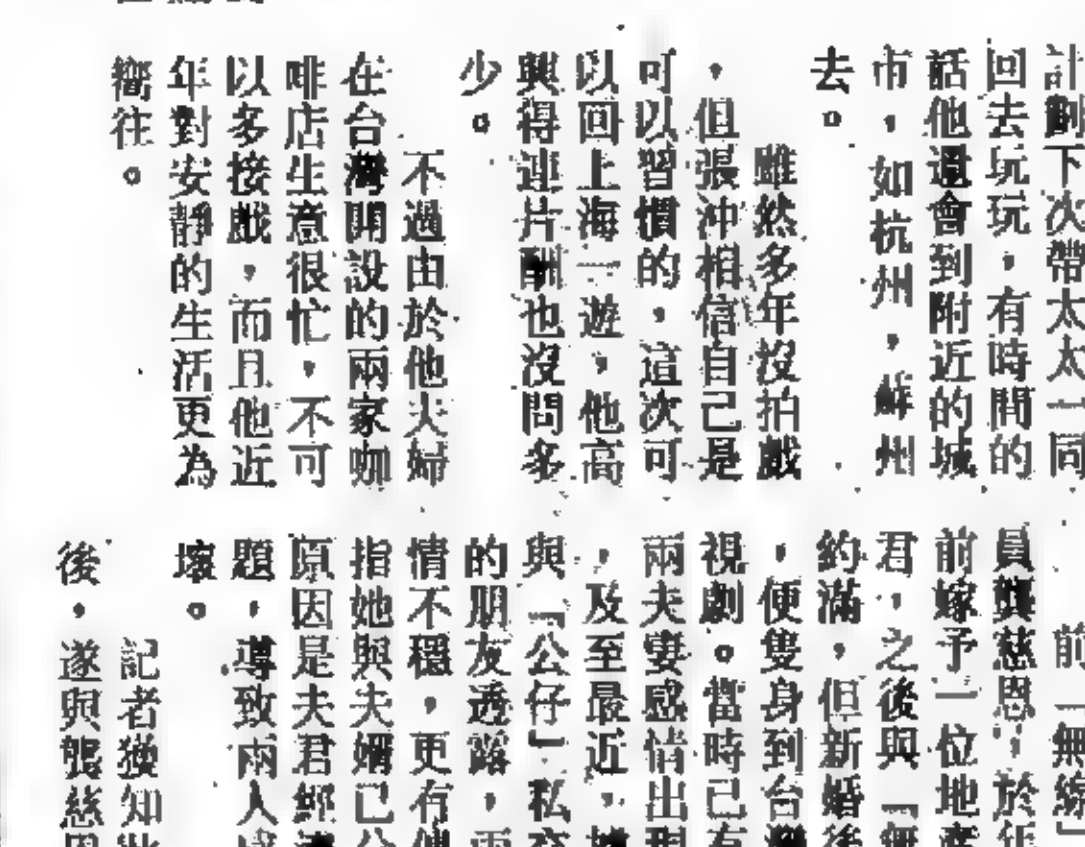 計劃下次帶太太一同
回去玩玩，有時間的
話他還會到附近的城
市，如杭州，蘇州
去。
雖然多年沒拍戲
，但張沖相信自己是
可以習慣的，這次可
以回上海一遊，他高
興得連片酬也沒問多
少。
不過由於他夫婦
在台灣開設的兩家咖
啡店生意很忙，不可
以多接戲，而且他近
年對安靜的生活更為
嚮往。
前「無綫」
員龔慈恩，於年
前嫁予一位地產
君，之後與「無
約滿，但新婚後
，便隻身到台灣
視劇。當時已有
兩夫妻感情出現
，及至最近，據
與「公仔」私交
的朋友透露，兩
情不穩，更有傳
指她與夫婿已分
原因是夫君經濟
題，導致兩人感
壞。
記者獲知此
後，遂與龔慈恩